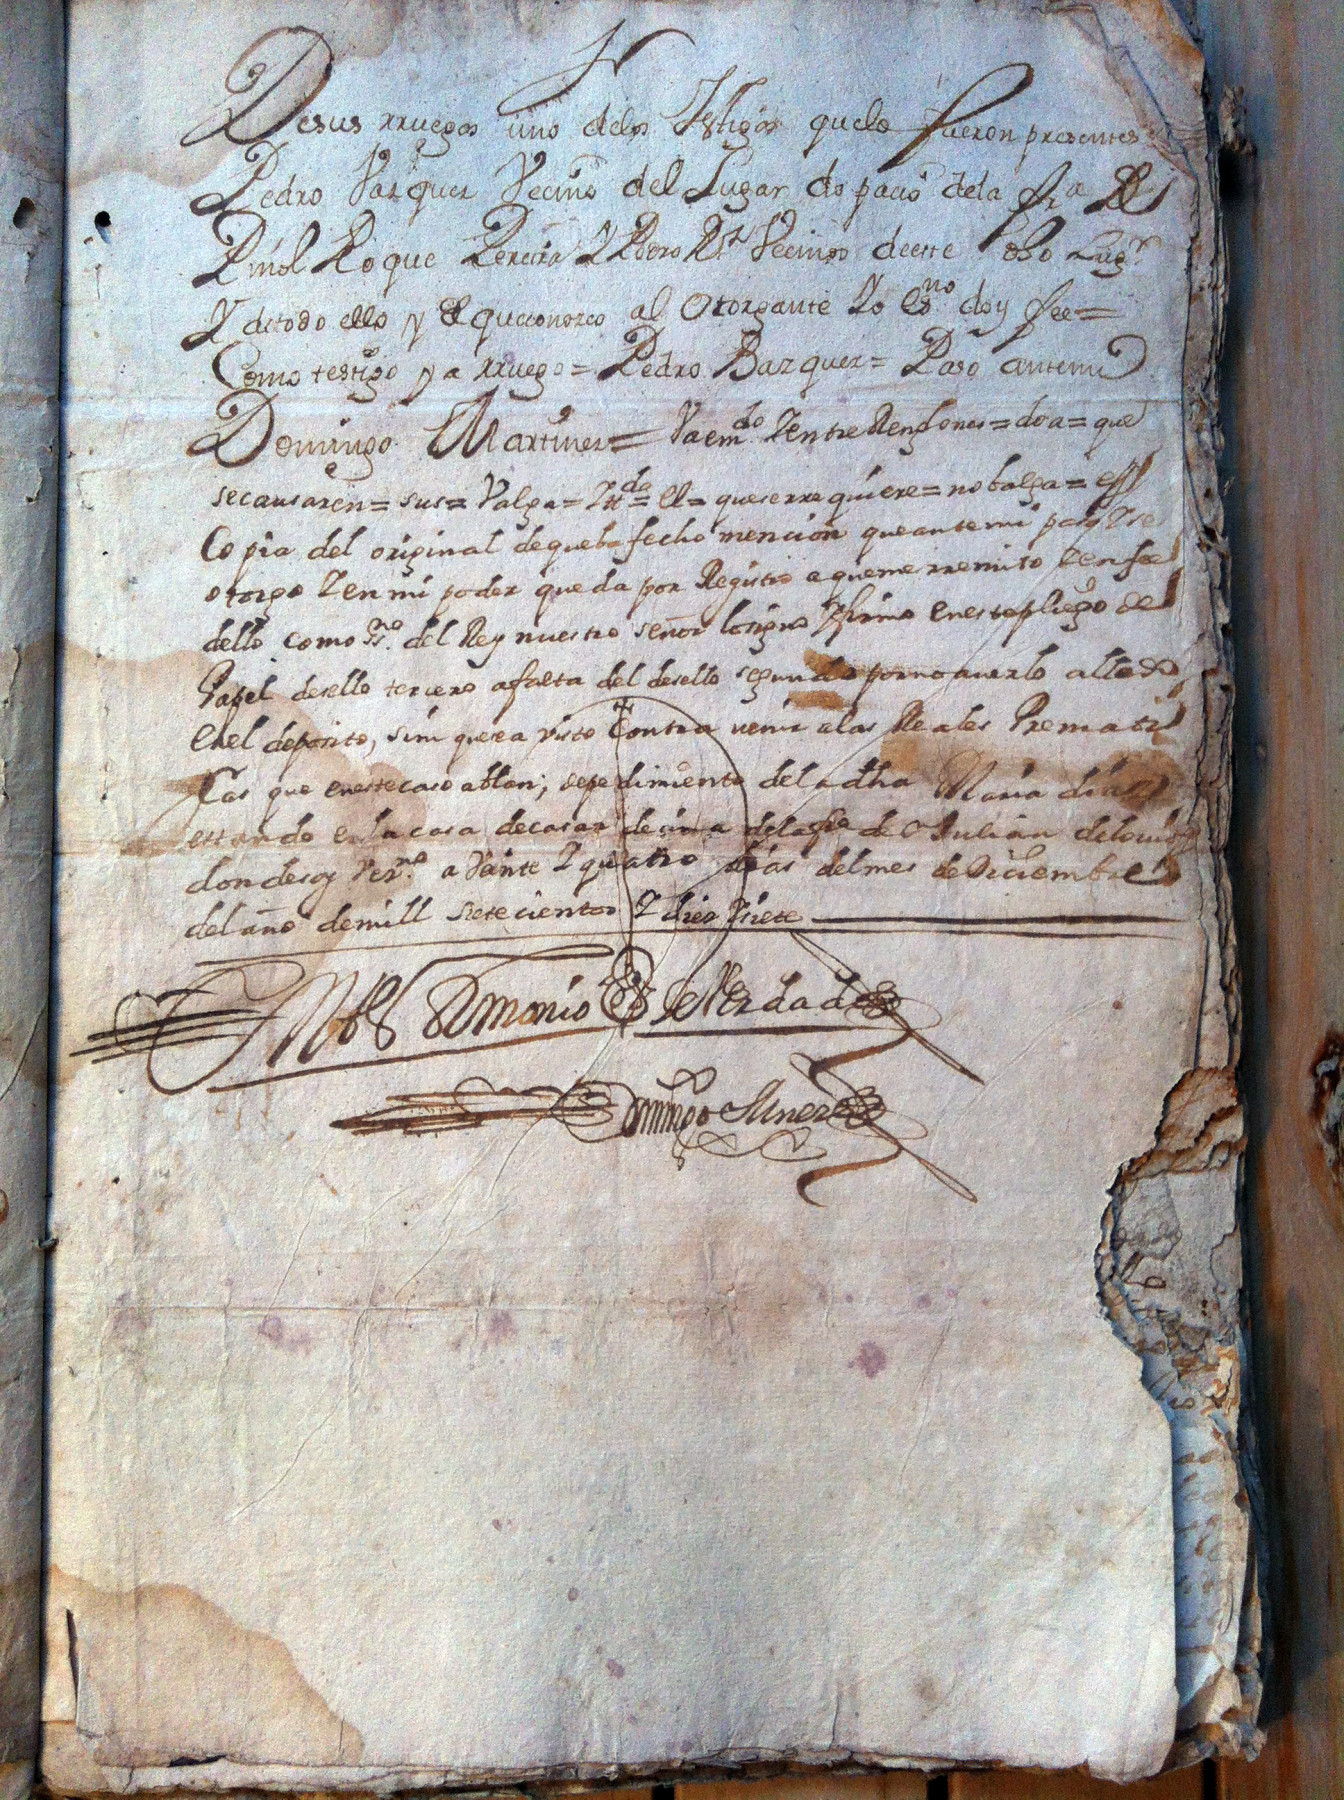 Desus rruegos uno delos testigos quelo fueron presentes
Pedro Vazquez Vecino del Lugar do pacio dela fra de
Piñol Roque Pereira Y Pedro Rs Vecinos deeste dho Lugr
Y detodo ello y El queconozco al Otorgante Yo Esno doy fee=
Como testigo y a rruego= Pedro Bazquez= Paso antemi
Domingo Martinez= Vaemdo Yentre Renglones= doa= que
secausaren= sus= Valga= Ttdo= El= queserrequiere= nobalga= es
Copia del original dequeba fecho mencion queantemi paso Yse
otorgo Yenmi poder queda por Registro aquemerremito Yenfee
dello como sno. del Rey nuestro señor losigno Yfirmo enestepliego de
Papel desello tercero afalta del desello segundo pornoaverlo allado
enel deposito, sin quesea visto Contra venir alas Reales Prematis
Cas que enestecaso ablan; depedimiento deladha Maria diaz
estando enlacasa decasar dela fra de Sn Julian delobios
dondesoy Vezno. a Vainte Y quatro dias delmes deDiciembre
delaño demill setecientos Y diez Ysiete
Antonio de Verdad
Domingo Mnez